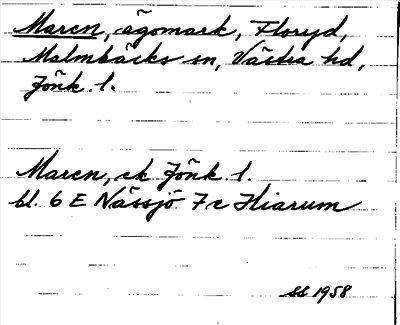 Maren, ägomark, Floryd,
Malmbäcks sn, Västra hd,
Jönk. l.
Maren, ek Jönk. l.
bl. 6 E Nässjö 7 c Hiarum
SS 1958